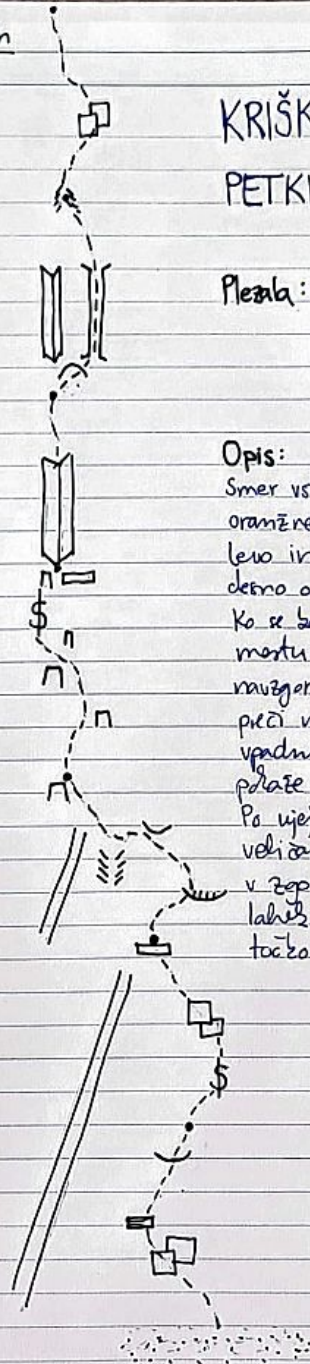 KRIŠK
PETK
Plezala:
Opis:
Smer vs
oranžne
levo in
desno o
Ko se
mestu
navzgor
preči v
vpadn
pokaže
Po
v žep
točko